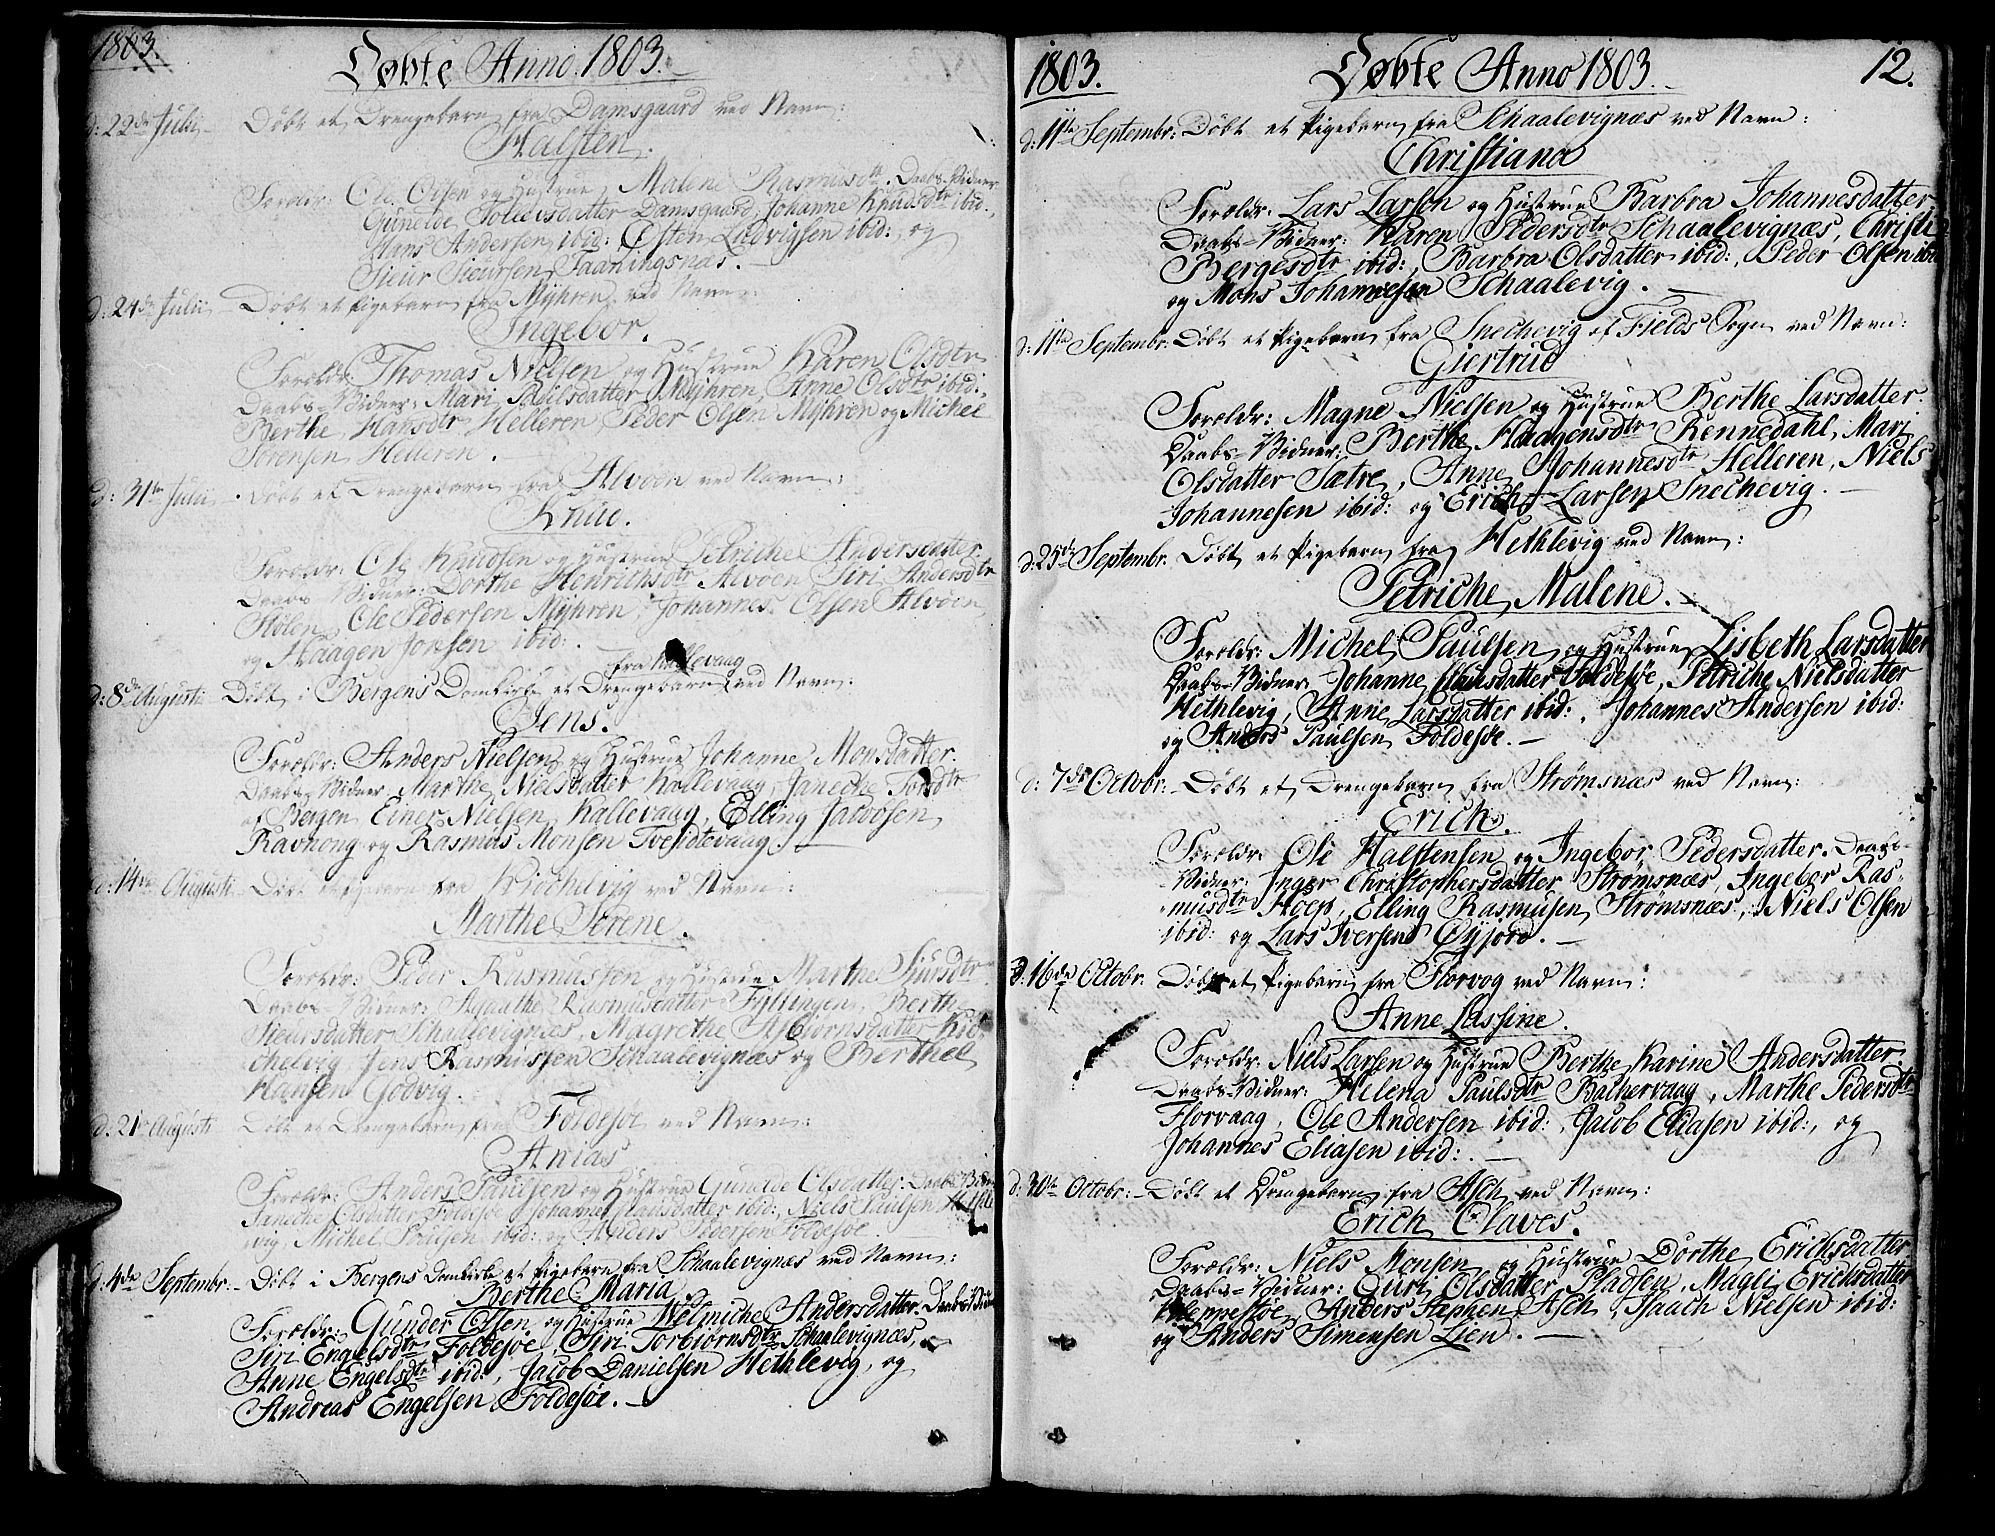 1803.
Døbte Anno 1803.
d: 22de Julii Døbt et Drengebarn fra Damsgaard ved Navn:
Halsten.
Foreldr: Ole Olsen og Hustrue Malene Rasmusdtr. Daabs-Vidner
Gunelde Tollevsdatter Damsgaard, Johanne Knudsdtr ibid:,
Hans Andersen ibid:, Østen Ludvigsen ibid:, og
Siur Siursen Taaningsnæs.
d: 24de Julii Døbt et Pigebarn fra Myhren ved Navn:
Ingebor.
Foreldr: Thomas Nielsen og Hustrue Karen Olsdtr
Daabs-Vidner: Mari Poulsdatter Myhren, Anne Olsdtr ibid:,
Berthe Hansdtr Helleren, Peder Olsen Myhren og Michel
Sørensen Helleren.
d: 31te Julii Døbt et Drengebarn fra Alvøen ved Navn:
Knud.
Foreldr: Ole Knudsen og Hustrue Petriche Andersdatter
Daabs Vidner: Dorthe Henrichsdtr Alvøen, Siri Andersdtr
Hølen, Ole Pedersen Myhren, Johannes Olsen Alvøen
og Haagen Jonsen ibid:.
fra Kallevaag
d: 8de Augusti Døbt i Bergens Domkirke et Drengebarn ved Navn:
Jens.
Foreldr: Anders Nielsen og Hustrue Johanne Monsdatter.
Daabs-Vidner Marthe Nielsdatter Kallevaag, Janeche
af Bergen, Einer Nielsen Kallevaag, Elling Jacobsen
Ravnong og Rasmus Monsen Tveditevaag.
d: 14de Augusti Døbt et Pigebarn fra Kiechelvig ved Navn:
Marthe Serene.
Foreldr: Peder Rasmussen og Hustrue Marthe Siursdtr
Daabs-Vidner: Agaathe Rasmusdatter Fyllingen, Berthe
Sieursdatter Schallevignæs, Magrethe Asbiørnsdatter Kie-
chelvig, Jens Rasmussen Schaalevignæs og Berthel
Hansen Godvig.
d: 21de Augusti Døbt et Drengebarn fra Foldesøe ved Navn:
Anias
Foreldr: Anders Paulsen og Hustrue Gunelde Olsdatter. Daabs Vidn:
Janeche Olsdatter Foldesøe, Johanne Clausdatter ibid:, Niels Paulsen Hethle
vig, Michel Paulsen ibid: og Anders Pedersen Foldesøe.
d: 4de Septembr. Døbt i Bergens Domkirke et Pigebarn fra Schaalevignæs ved Navn:
Berthe Maria.
Foreldr: Gunder Olsen og Hustrue Welmiche Andersdatter. Daabs Vidn
Siri Engelsdtr Foldesøe, Siri Torbiørnsdtr Schaalevignæs,
Anne Engelsdtr ibid:, Jacob Danielsen Hethlevig, og
Andreas Engelsen Foldesøe.
1803.
Døbte Anno 1803.
12.
d: 11te Septembr: Døbt et Pigebarn fra Schaalevignæs ved Navn:
Christiana
Foreldr: Lars Larsen og Hustrue Barbra Johannesdatter
Daabs-Vidner: Karen Pedersdtr Schaalevignæs, Christi
Bergesdtr ibid:, Barbra Olsdatter ibid:, Peder Olsen ibi
og Mons Johannesen Schaalevig.
d: 11te Septembr: Døbt et Pigebarn fra Snechevig af Fields Sogn ved Navn:
Giertrud
Foreldr: Magne Nielsen og Hustrue Berthe Larsdatter.
Daabs-Vidner: Berthe Haagensdtr Rennedahl, Mari
Olsdatter Sætre, Anne Johannesdtr Helleren, Niels
Johannesen ibid: og Erich Larsen Snechevig.
d: 25de Septembr. Døbt et Pigebarn fra Hethlevig ved Navn:
Petriche Malene.
Foreldr: Michel Paulsen og Hustrue Lisbeth Larsdatter
Daabs-Vidner Johanne Clausdatter Foldesøe, Petriche Nielsdatter
Hethlevig, Anne Larsdatter ibid:, Johannes Andersen ibid:
og Anders Paulsen Foldesøe.
d: 7de Octobr. Døbt et Drengebarn fra Strømsnæs ved Navn:
Erich.
Foreldr: Ole Halstensen og Ingebor Pedersdatter. Daabs-
-Vidner: Inger Christophersdatter Strømsnæs, Ingebor Ras-
musdtr Hoep, Elling Rasmusen Strømsnæs, Niels Olsen
ibid: og Lars Iversen Øyjord.
d: 16de Octobr. Døbt et Pigebarn fra Florvog ved Navn:
Anne Lassine.
Foreldr: Niels Larsen og Hustrue Berthe Karine Andersdatter
Daabs-Vidner: Helena Paulsdtr Bachervaag, Marthe Pedersdtr
Florvaag, Ole Andersen ibid:, Jacob Eliasen ibid:, og
Johannes Eliasen ibid:.
d: 30te Octobr: Døbt et Drengebarn fra Asch ved Navn:
Erich Olaves.
Foreldr: Niels Monsen og Hustrue Dorthe Erichsdatter
Daabs-Vidner: Guri Olsdatter Pladsen, Magli Erichsdatter
Anders Asch, Isaach Nielsen ibid:
og Anders Simensen Lien.